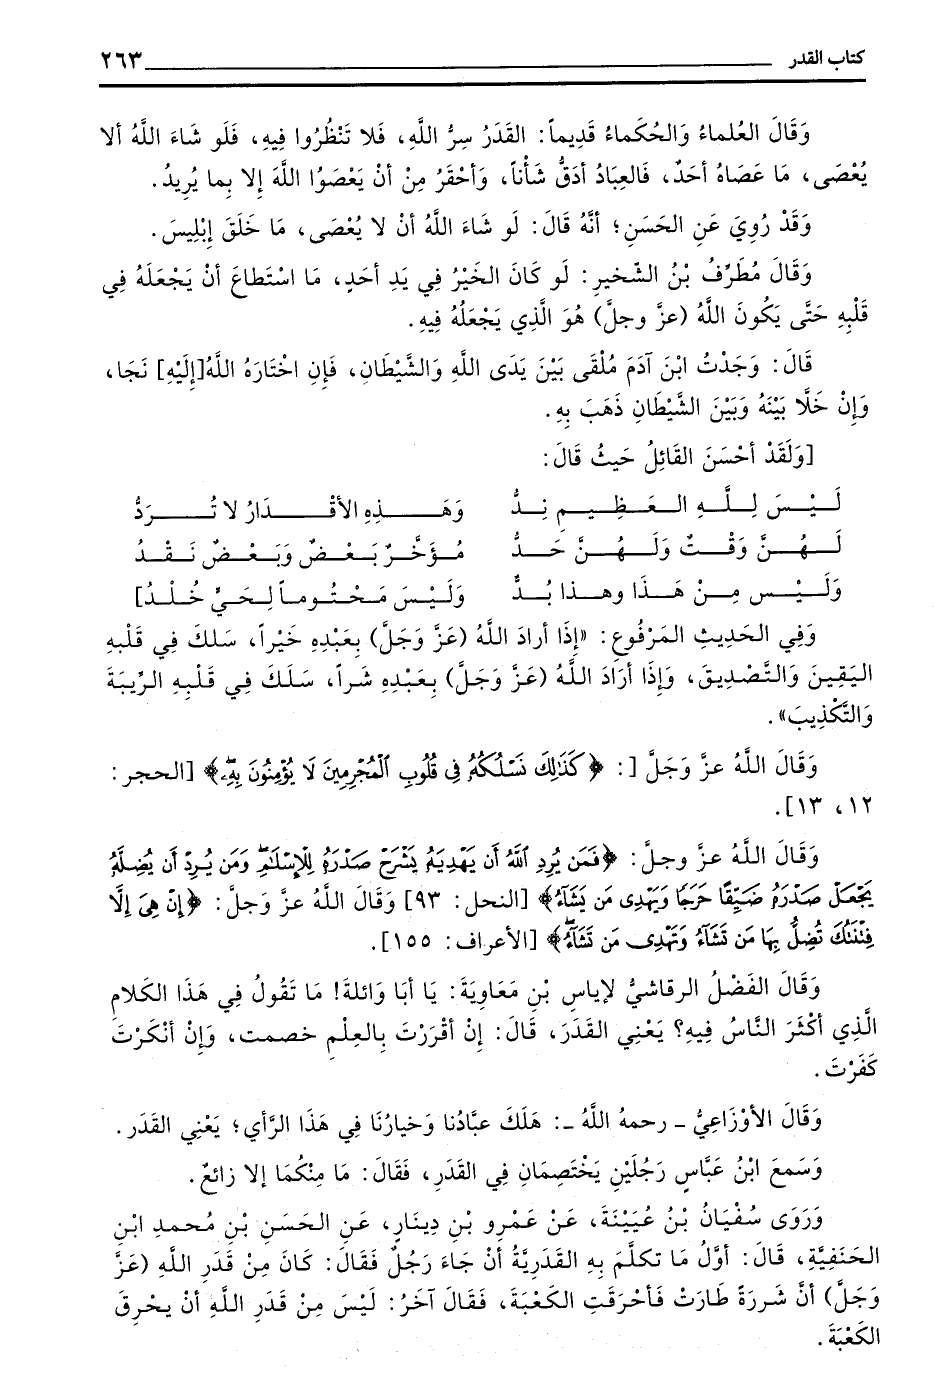 كتاب القدر ٢٦٣
وَقَالَ العُلماءُ وَالحُكماءُ قَدِيماً: القَدَرُ سِرُّ اللَّهِ، فَلا تَنْظُرُوا فِيهِ، فَلَو شَاءَ اللَّهُ ألا
يُعْصَى، مَا عَصَاهُ أحَدٌ، فَالعِبَادُ أدَقُّ شَأْناً، وَأحْقَرُ مِنْ أنْ يَعْصَوُا اللَّهَ إلا بِما يُرِيدُ.
وَقَدْ رُوِيَ عَنِ الحَسَنِ؛ أنَّهُ قَالَ: لَو شَاءَ اللَّهُ أنْ لا يُعْصَى، مَا خَلَقَ إبْلِيسَ.
وَقَالَ مُطَرِّفُ بْنُ الشّخيرِ: لَو كَانَ الخَيْرُ فِي يَدِ أحَدٍ، مَا اسْتَطاعَ أنْ يَجْعَلَهُ فِي
قَلْبِهِ حَتَّى يَكُونَ اللَّهُ (عزَّ وجلَّ) هُوَ الَّذِي يَجْعَلُهُ فِيهِ.
قَالَ: وَجَدْتُ ابْنَ آدَمَ مُلْقَى بَيْنَ يَدَى اللَّهِ وَالشَّيْطَانِ، فَإِنِ اخْتَارَهُ اللَّهُ[إلَيْهِ] نَجَا،
وَإنْ خَلَّا بَيْنَهُ وَبَيْنَ الشَّيْطَانِ ذَهَبَ بِهِ.
[وَلَقَدْ أحْسَنَ القَائِلُ حَيثُ قَالَ:
لَيْسَ لِلَّهِ العَظِيمِ نِدُّ وَهَذِهِ الأقْدَارُ لا تُرَدُّ
لَهُنَّ وَقْتٌ وَلَهُنَّ حَدُّ مُؤَخَّرٌ بَعْضٌ وَبَعْضٌ نَقْدُ
وَلَيْس مِنْ هَذَا وهذا بُدٌّ وَلَيْسَ مَحْتُوماً لِحَيِّ خُلْدُ]
وَفِي الحَدِيثِ المَرْفُوعِ: «إذَا أرادَ اللَّهُ (عَزَّ وَجَلَّ) بِعَبْدِهِ خَيْراً، سَلكَ فِي قَلْبِهِ
اليَقِينَ وَالتَّصْدِيقَ، وَإذَا أرَادَ اللَّهُ (عَزَّ وَجَلَّ) بِعَبْدِهِ شَراً، سَلَكَ فِي قَلْبِهِ الرِّيبَةَ
وَالتَّكْذِيبَ».
وَقَالَ اللَّهُ عزَّ وَجَلَّ [: ﴿كَذَٰلِكَ نَسْلُكُهُ فِي قُلُوبِ الْمُجْرِمِينَ لَا يُؤْمِنُونَ بِهِۦ﴾ [الحجر:
١٢، ١٣].
وَقَالَ اللَّهُ عزَّ وجلَّ: ﴿فَمَن يُرِدِ اللَّهُ أَن يَهْدِيَهُ يَشْرَحْ صَدْرَهُ لِلْإِسْلَٰمِ وَمَن يُرِدْ أَن يُضِلَّهُ
يَجْعَلْ صَدْرَهُ ضَيِّقًا حَرَجًا وَيَهْدِى مَن يَشَآءُ﴾ [النحل: ٩٣] وَقَالَ اللَّهُ عزَّ وَجلَّ: ﴿إِنْ هِىَ إِلَّا
فِتْنَتُكَ تُضِلُّ بِهَا مَن تَشَآءُ وَتَهْدِى مَن تَشَآءُ﴾ [الأعراف: ١٥٥].
وَقَالَ الفَضْلُ الرقاشيُّ لإياسِ بْنِ مَعَاوِيَةَ: يَا أبَا وَائلةَ! مَا تَقُولُ فِي هَذَا الكَلامِ
الَّذِي أكْثَرَ النَّاسُ فِيهِ؟ يَعْنِي القَدَرَ، قَالَ: إنْ أقْرَرْتَ بِالعِلْمِ خصمت، وَإنْ أنْكَرْتَ
كَفَرْتَ.
وَقَالَ الأوْزَاعِيُّ - رحمهُ اللَّهُ -: هَلَكَ عبَّادُنا وَخيارُنَا فِي هَذَا الرَّأي؛ يَعْنِي القَدَر.
وَسَمعَ ابْنُ عَبَّاسٍ رَجُلَيْنِ يَخْتَصِمَانِ فِي القَدَرِ، فَقَالَ: مَا مِنْكُمَا إلا زائغٌ.
وَرَوَى سُفْيَانُ بْنُ عُيَيْنَةَ، عَنْ عَمْرِو بْنِ دِينَارٍ، عَنِ الحَسَنِ بْنِ مُحمدِ ابْنِ
الحَنَفِيَّةِ، قَالَ: أوَّلُ مَا تكلَّمَ بِهِ القَدَرِيَّةُ أنْ جَاءَ رَجُلٌ فَقَالَ: كَانَ مِنْ قَدَرِ اللَّهِ (عَزَّ
وَجَلَّ) أنَّ شَررَةً طَارَتْ فَأحْرَقَتِ الكَعْبَةَ، فَقَالَ آخَرُ: لَيْسَ مِنْ قَدَرِ اللَّهِ أنْ يحْرِقَ
الكَعْبَةَ.